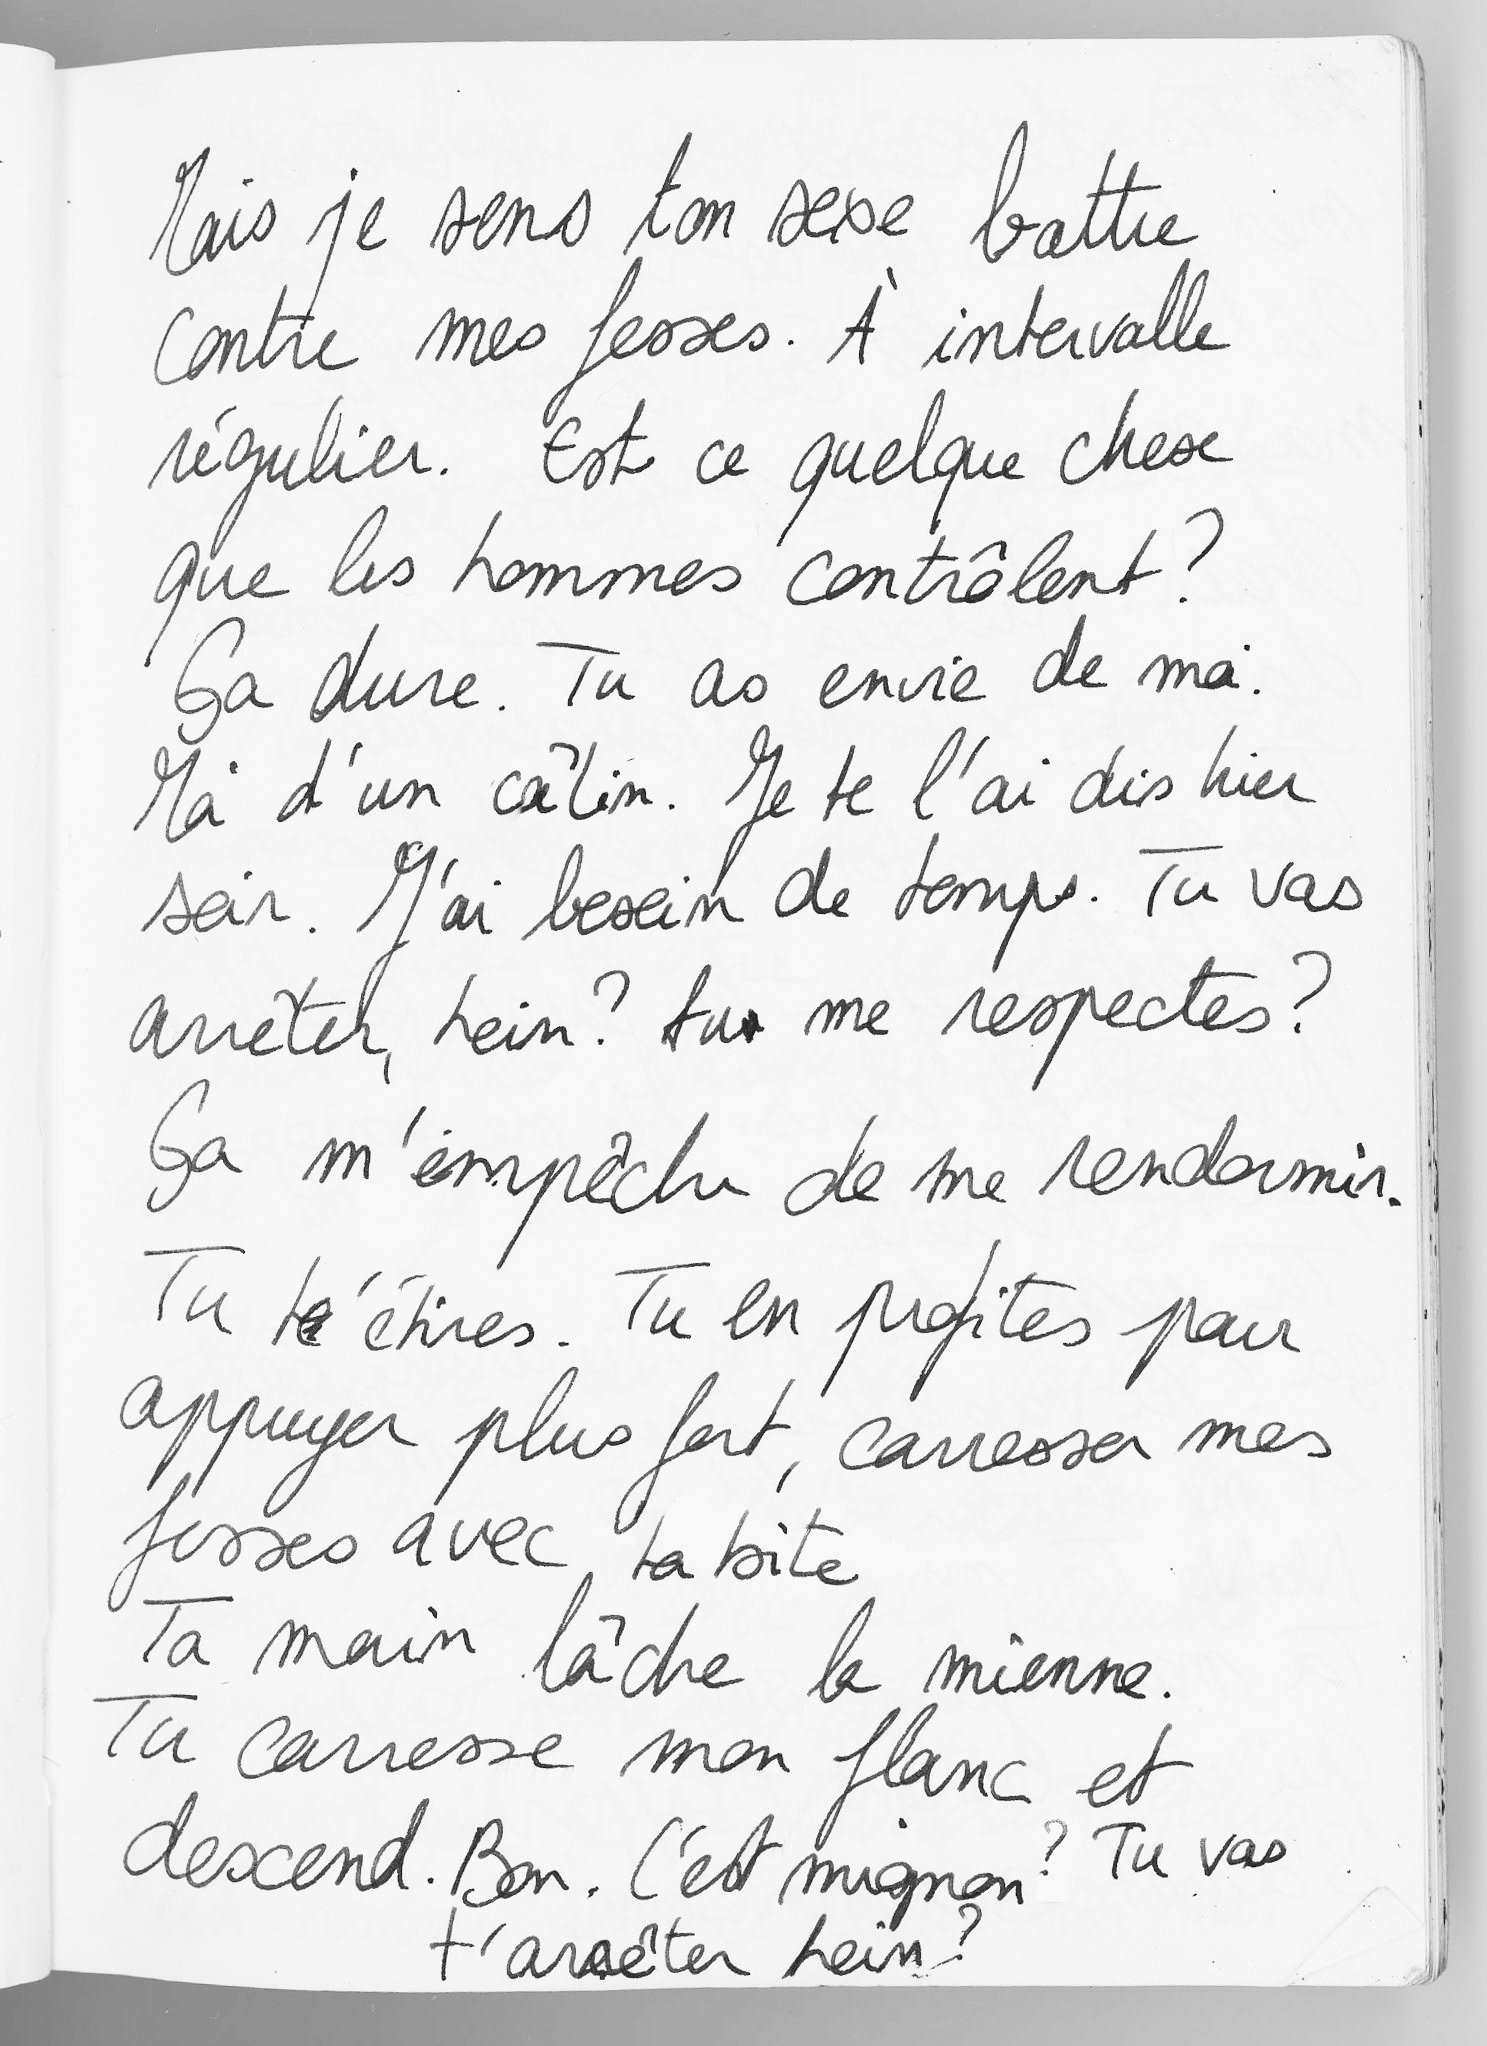 Mais je sens ton sexe battre
contre mes fesses. À intervalle
régulier. Est ce quelque chose
que les hommes contrôlent?
Ça dure. Tu as envie de moi.
Moi d'un câlin. Je te l'ai dis hier
soir. J'ai besoin de temps. Tu vas
arrêter, hein? tu me respectes?
Ça m'empêche de me rendormir.
Tu t'étires. Tu en profites pour
appuyer plus fort, carresser mes
fesses avec ta bite
Ta main lâche la mienne.
Tu carresse mon flanc et
descend. Bon. C'est mignon? Tu vas
t'arrêter hein?